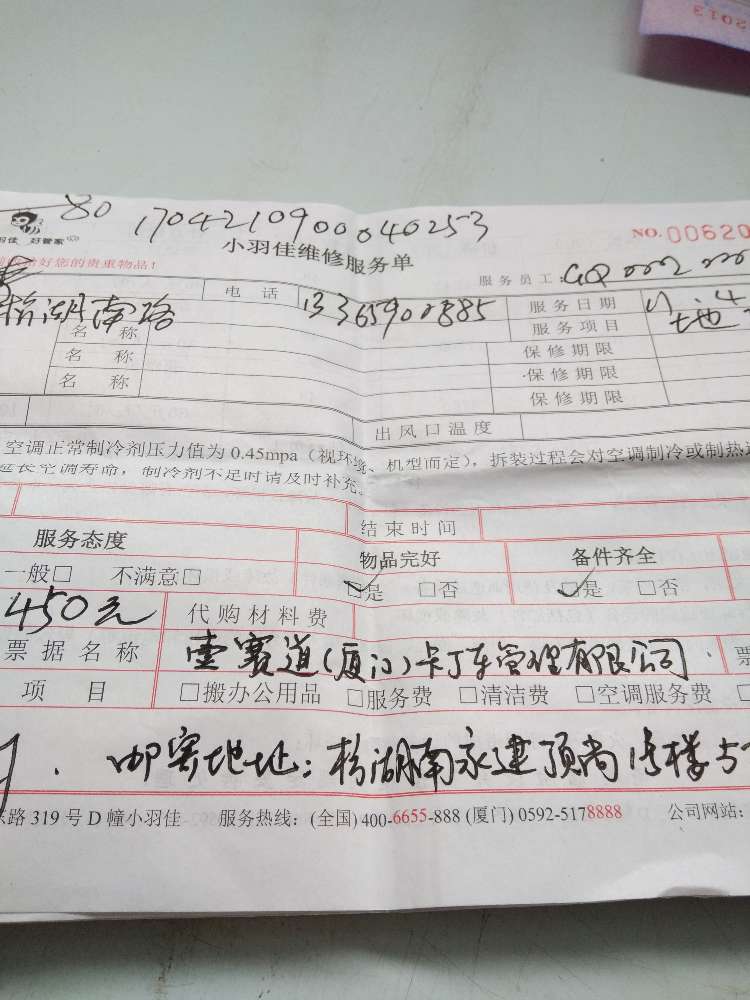 2013
80 1704210900040253
好管家
小羽佳维修服务单
NO.00620
好您的贵重物品!
服务员工:
湖南路
电话
13365902885
服务日期
名称
服务项目
地
名称
保修期限
名称
保修期限
保修期限
出风口温度
空调正常制冷剂压力值为 0.45mpa(视环境、机型而定),拆装过程会对空调制冷或制热
延长空调寿命,制冷剂不足时请及时补充。
结束时间
服务态度
物品完好
备件齐全
一般□ 不满意□
□是 □否
□是 □否
450元
代购材料费
票据名称
壹赛道(厦门)卡丁车管理有限公司
票
项目
□搬办公用品 □服务费 □清洁费 □空调服务费
邮寄地址:枋湖南永建顶尚
路 319 号 D 幢小羽佳
服务热线:(全国)400-6655-888 (厦门) 0592-5178888
公司网站: